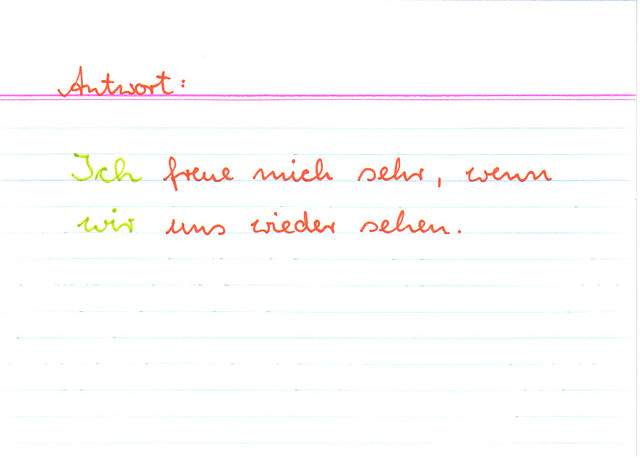 Antwort:
Ich freue mich sehr, wenn
wir uns wieder sehen.